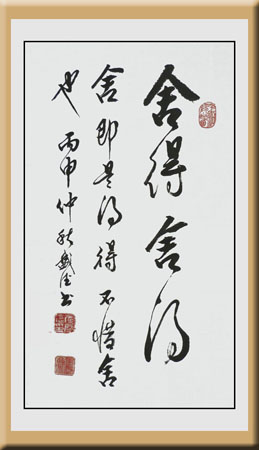 舍得舍得
舍即是得得不惜舍
也丙申仲秋 书